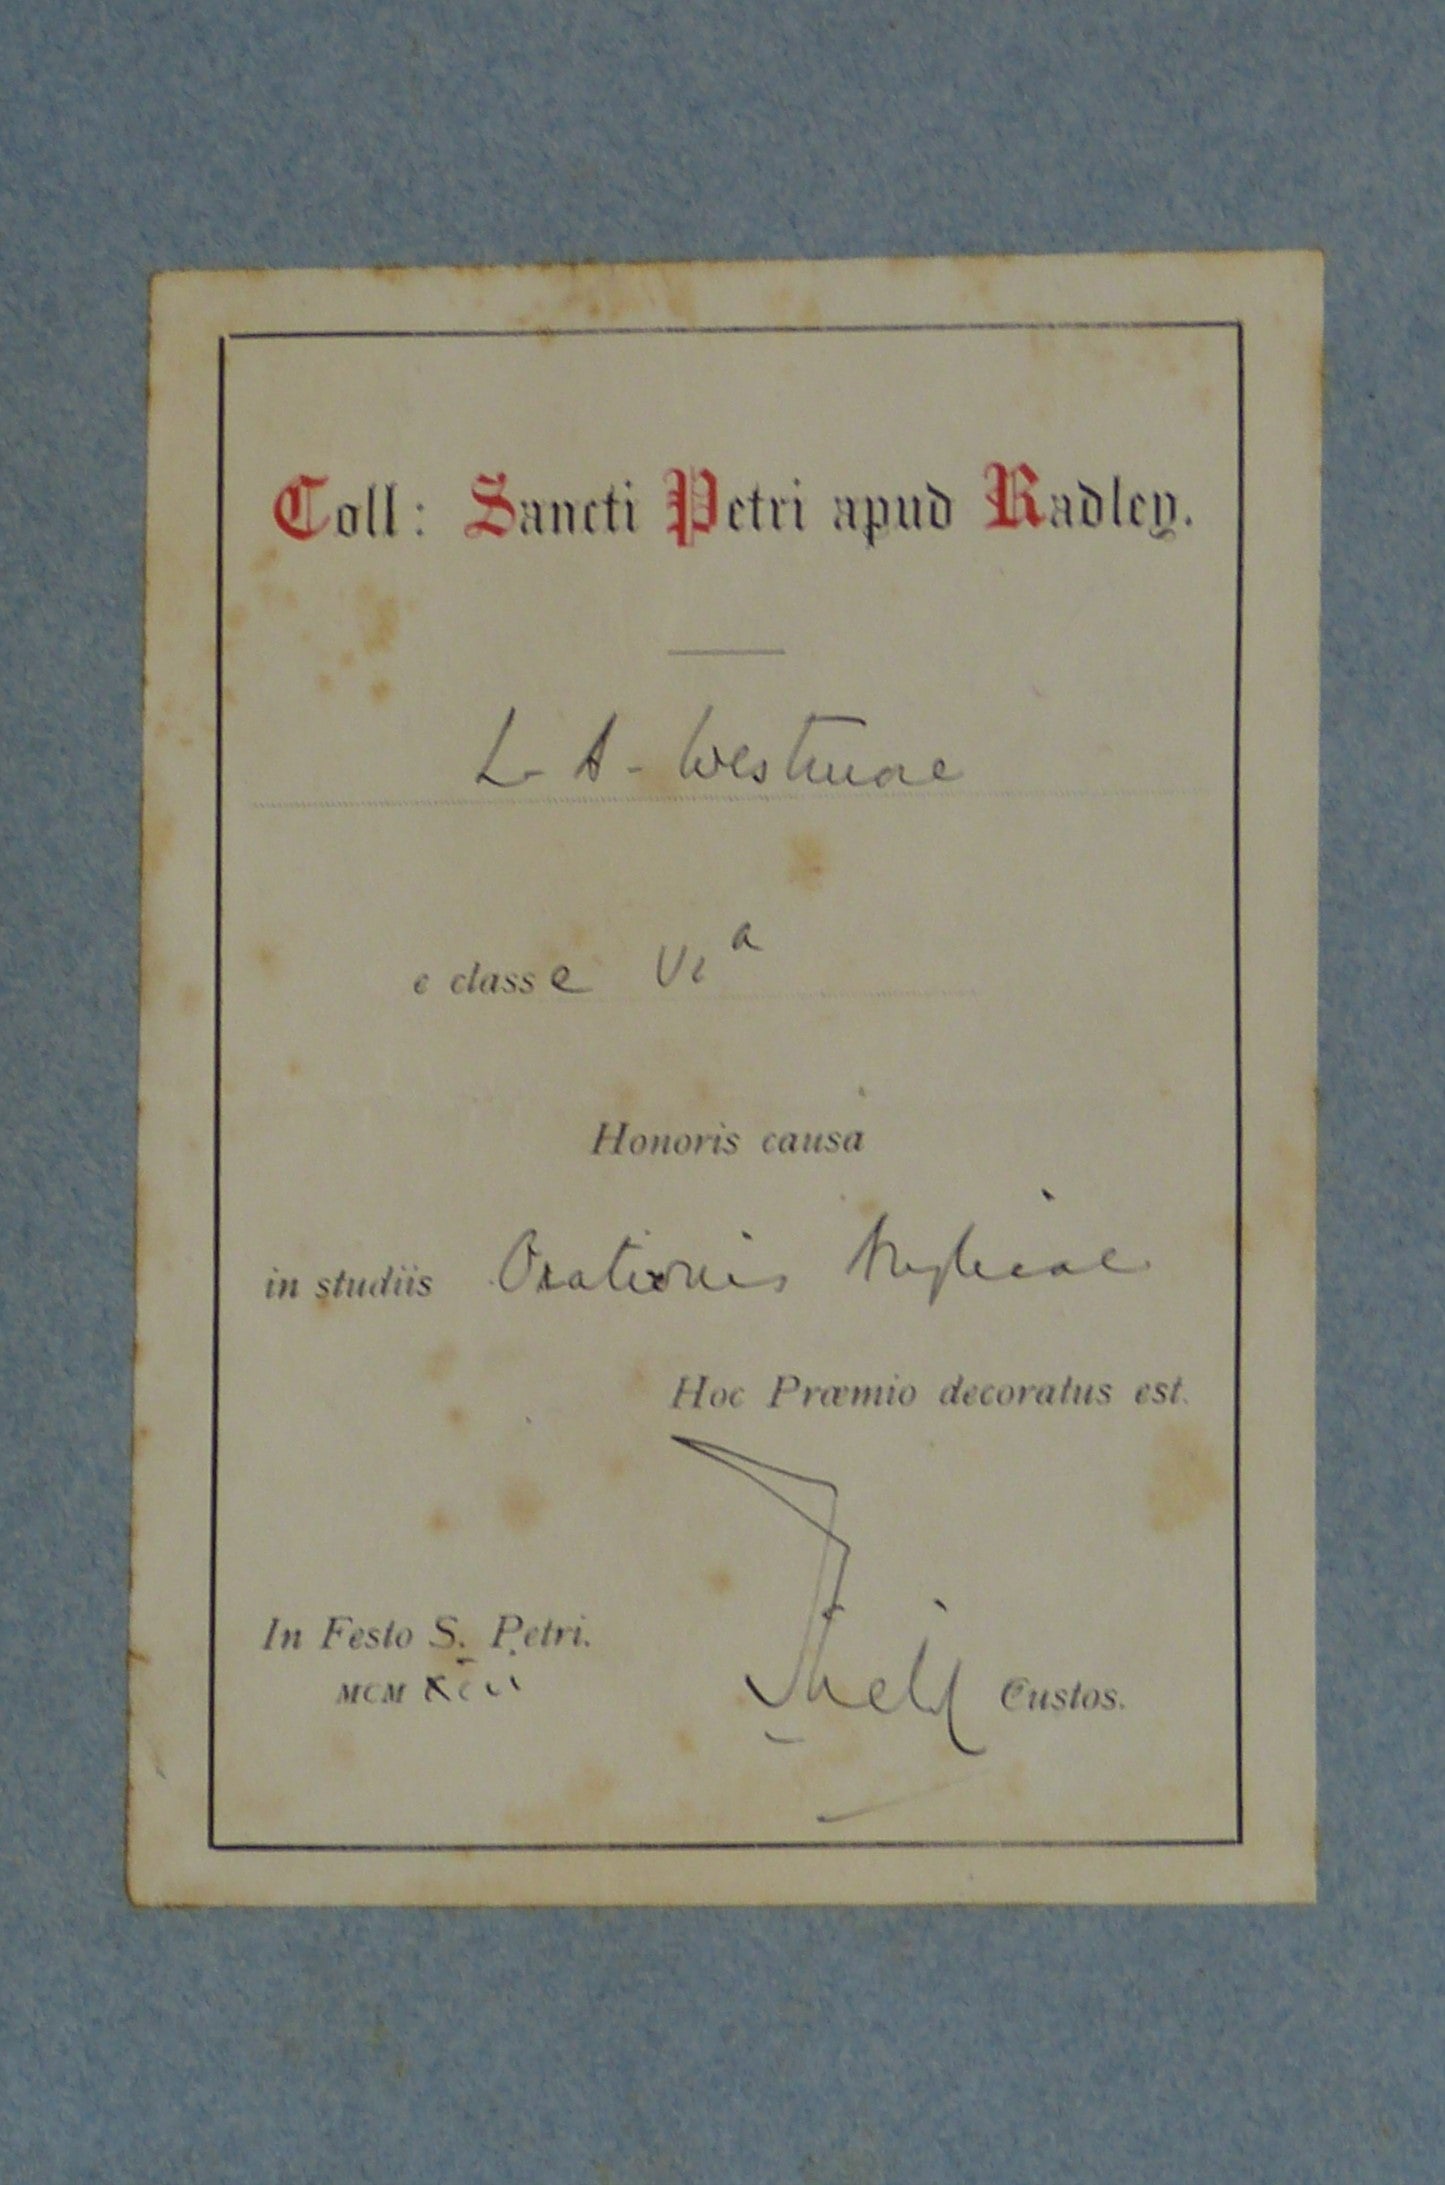 Coll: Sancti Petri apud Radley.
L. A. Westmore
e classe VIa
Honoris causa
in studiis Orationis Anglicae
Hoc Præmio decoratus est.
In Festo S. Petri.
MCM xiii
Field Custos.